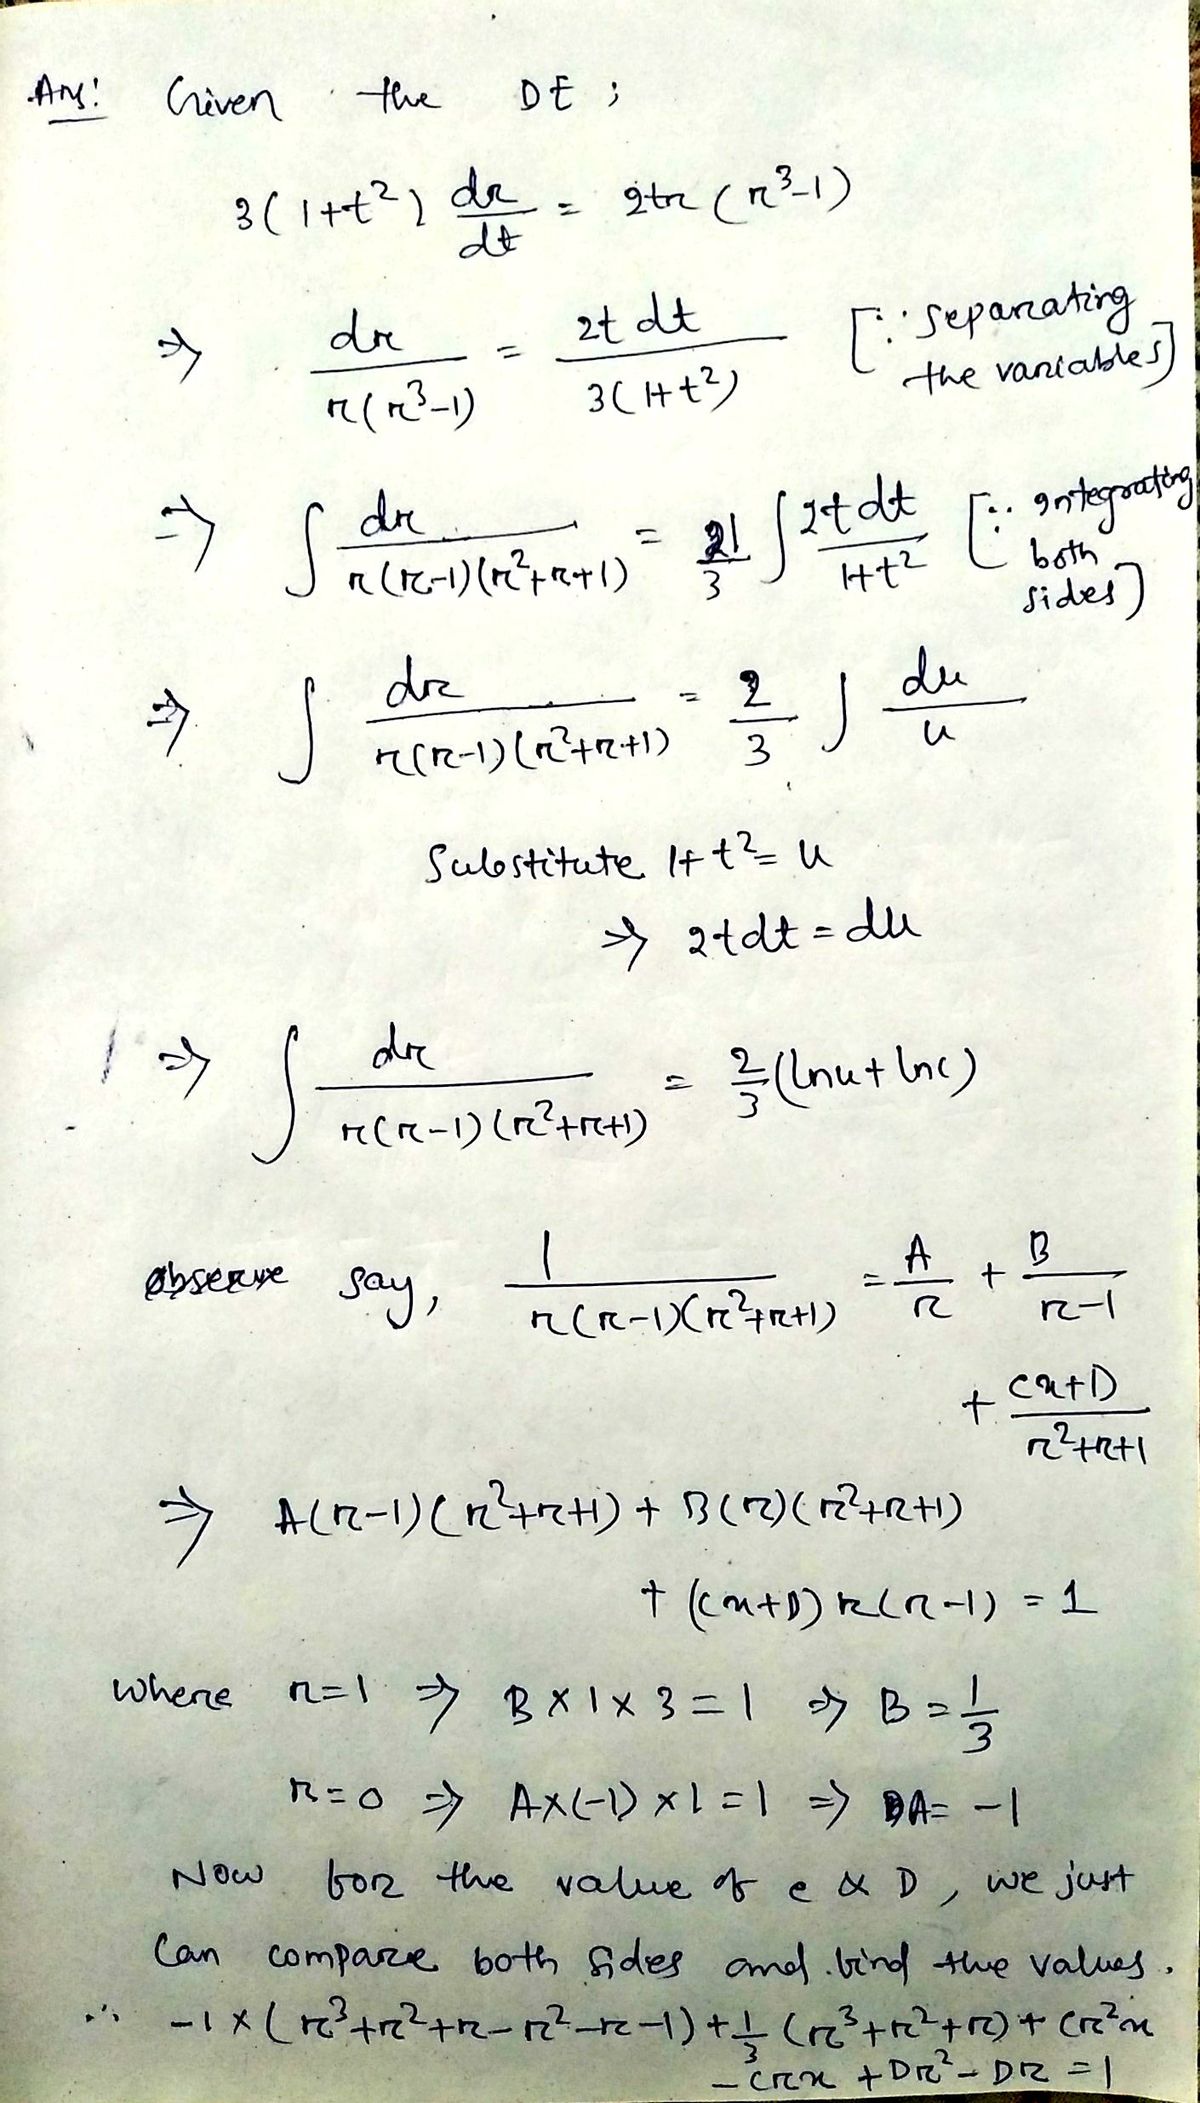 Ans: Given the DE ;
3(1+t²) dr/dt = 2tr (r³-1)
⇒ dr/r(r³-1) = 2t dt/3(1+t²) [∵ separating the variables]
⇒ ∫ dr/r(r-1)(r²+r+1) = 1/3 ∫ 2t dt/1+t² [∵ Integrating both sides]
⇒ ∫ dr/r(r-1)(r²+r+1) = 2/3 ∫ du/u
Substitute 1+t² = u
⇒ 2tdt = du
⇒ ∫ dr/r(r-1)(r²+r+1) = 2/3 (lnu + lnc)
observe say, 1/r(r-1)(r²+r+1) = A/r + B/r-1
+ cx+D/r²+r+1
⇒ A(r-1)(r²+r+1) + B(r)(r²+r+1)
+ (cx+D) r(r-1) = 1
where r=1 ⇒ B×1×3=1 ⇒ B=1/3
r=0 ⇒ A×(-1)×1=1 ⇒ A= -1
Now for the value of c & D, we just
can compare both sides and find the values.
∴ -1×(r³+r²+r-r²-r-1)+1/3(r³+r²+r)+cr²x
-crx +Dr²-Dr =1